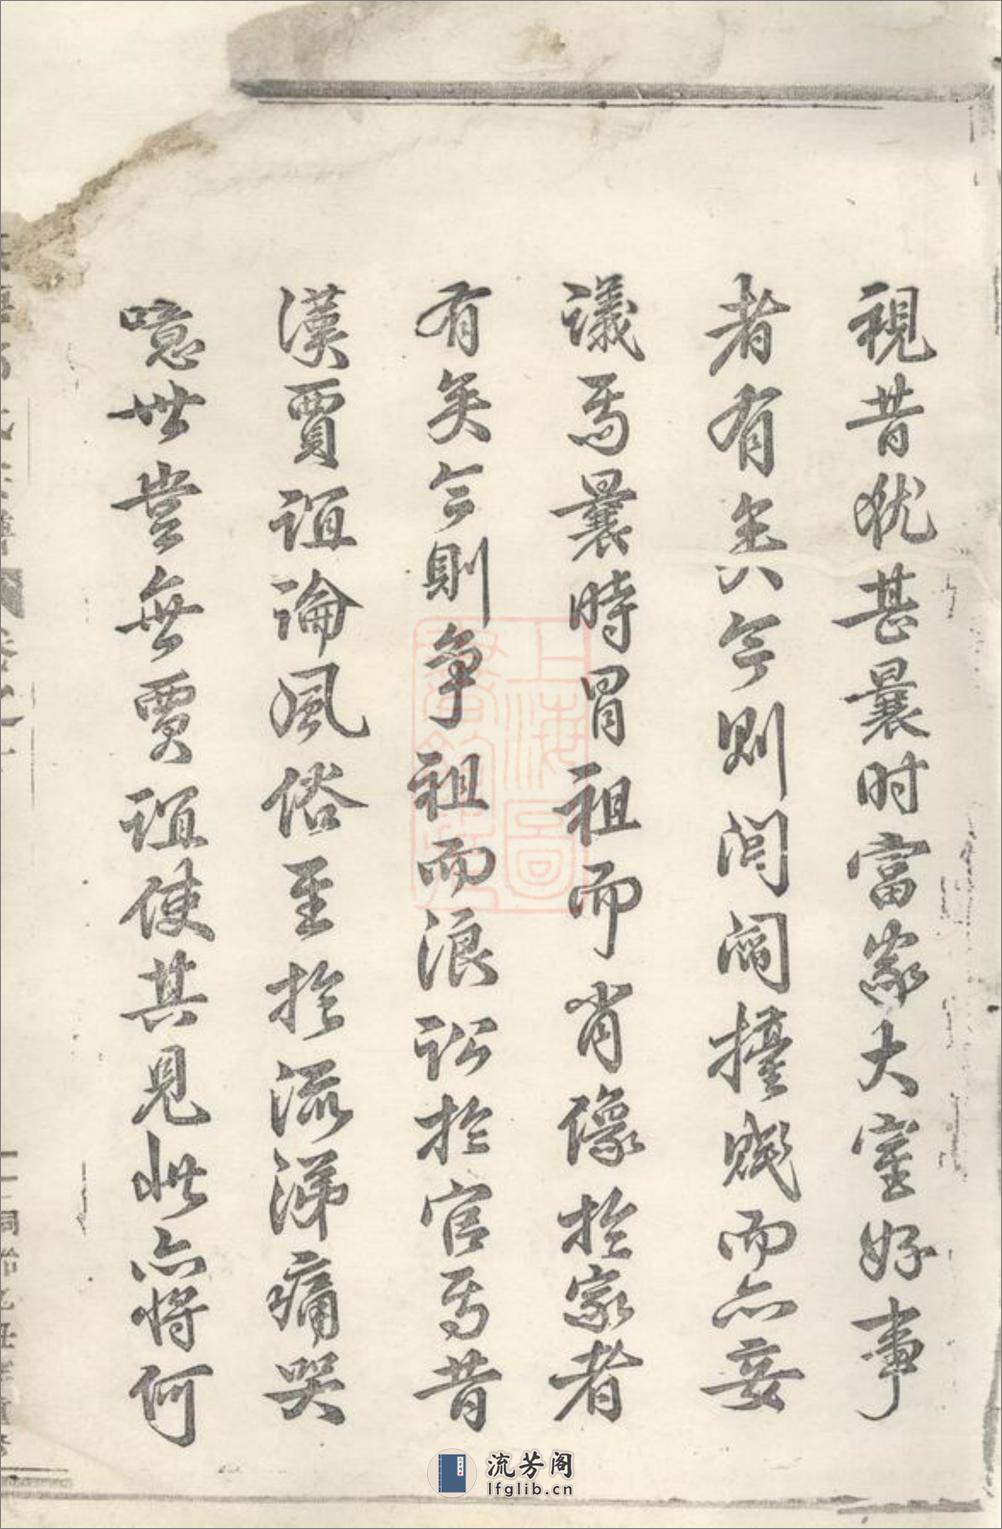 視昔犹甚曩时富家大室好事
者有矣今則闾阎擡賤而亦妄
議焉曩時冒祖而肖像於家者
有矣今則争祖而浪訟於官焉昔
漢賈誼論風俗至於流涕痛哭
噫世豈無賈誼使其見此亦將何
上海圖
流芳阁
lfglib.cn